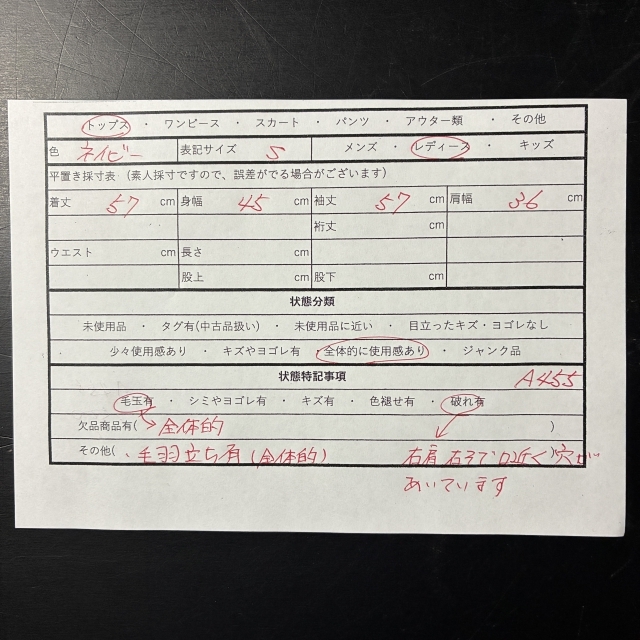 トップス ・ ワンピース ・ スカート ・ パンツ ・ アウター類 ・ その他
色 ネイビー 表記サイズ S メンズ ・ レディース ・ キッズ
平置き採寸表 (素人採寸ですので、誤差がでる場合がございます)
着丈 57 cm 身幅 45 cm 袖丈 57 cm 肩幅 36 cm
裄丈 cm
ウエスト cm 長さ cm
股上 cm 股下 cm
状態分類
未使用品 ・ タグ有(中古品扱い) ・ 未使用品に近い ・ 目立ったキズ・ヨゴレなし
少々使用感あり ・ キズやヨゴレ有 ・ 全体的に使用感あり ・ ジャンク品
状態特記事項 A455
毛玉有 ・ シミやヨゴレ有 ・ キズ有 ・ 色褪せ有 ・ 破れ有
欠品商品有( 全体的 )
その他( ・毛羽立ち有(全体的) 右肩 右そで口近く穴が )
あいています